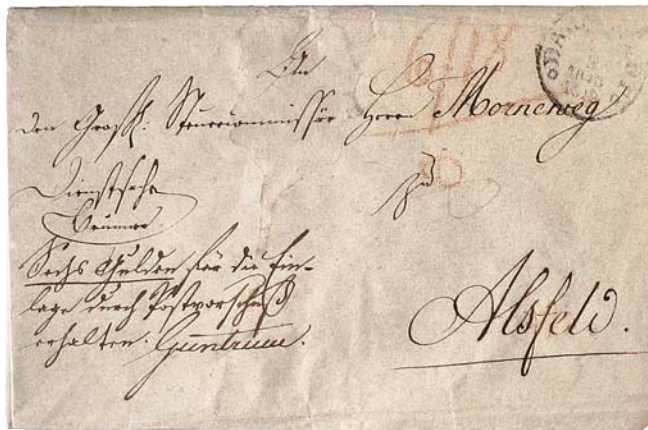 An
den Großh: Steuercommissär Herrn Morneweg
zu
Dienstsache
Sechs Gulden für die Ein-
lage durch Postvorschuß
erhalten. Guntrum.
Alsfeld.